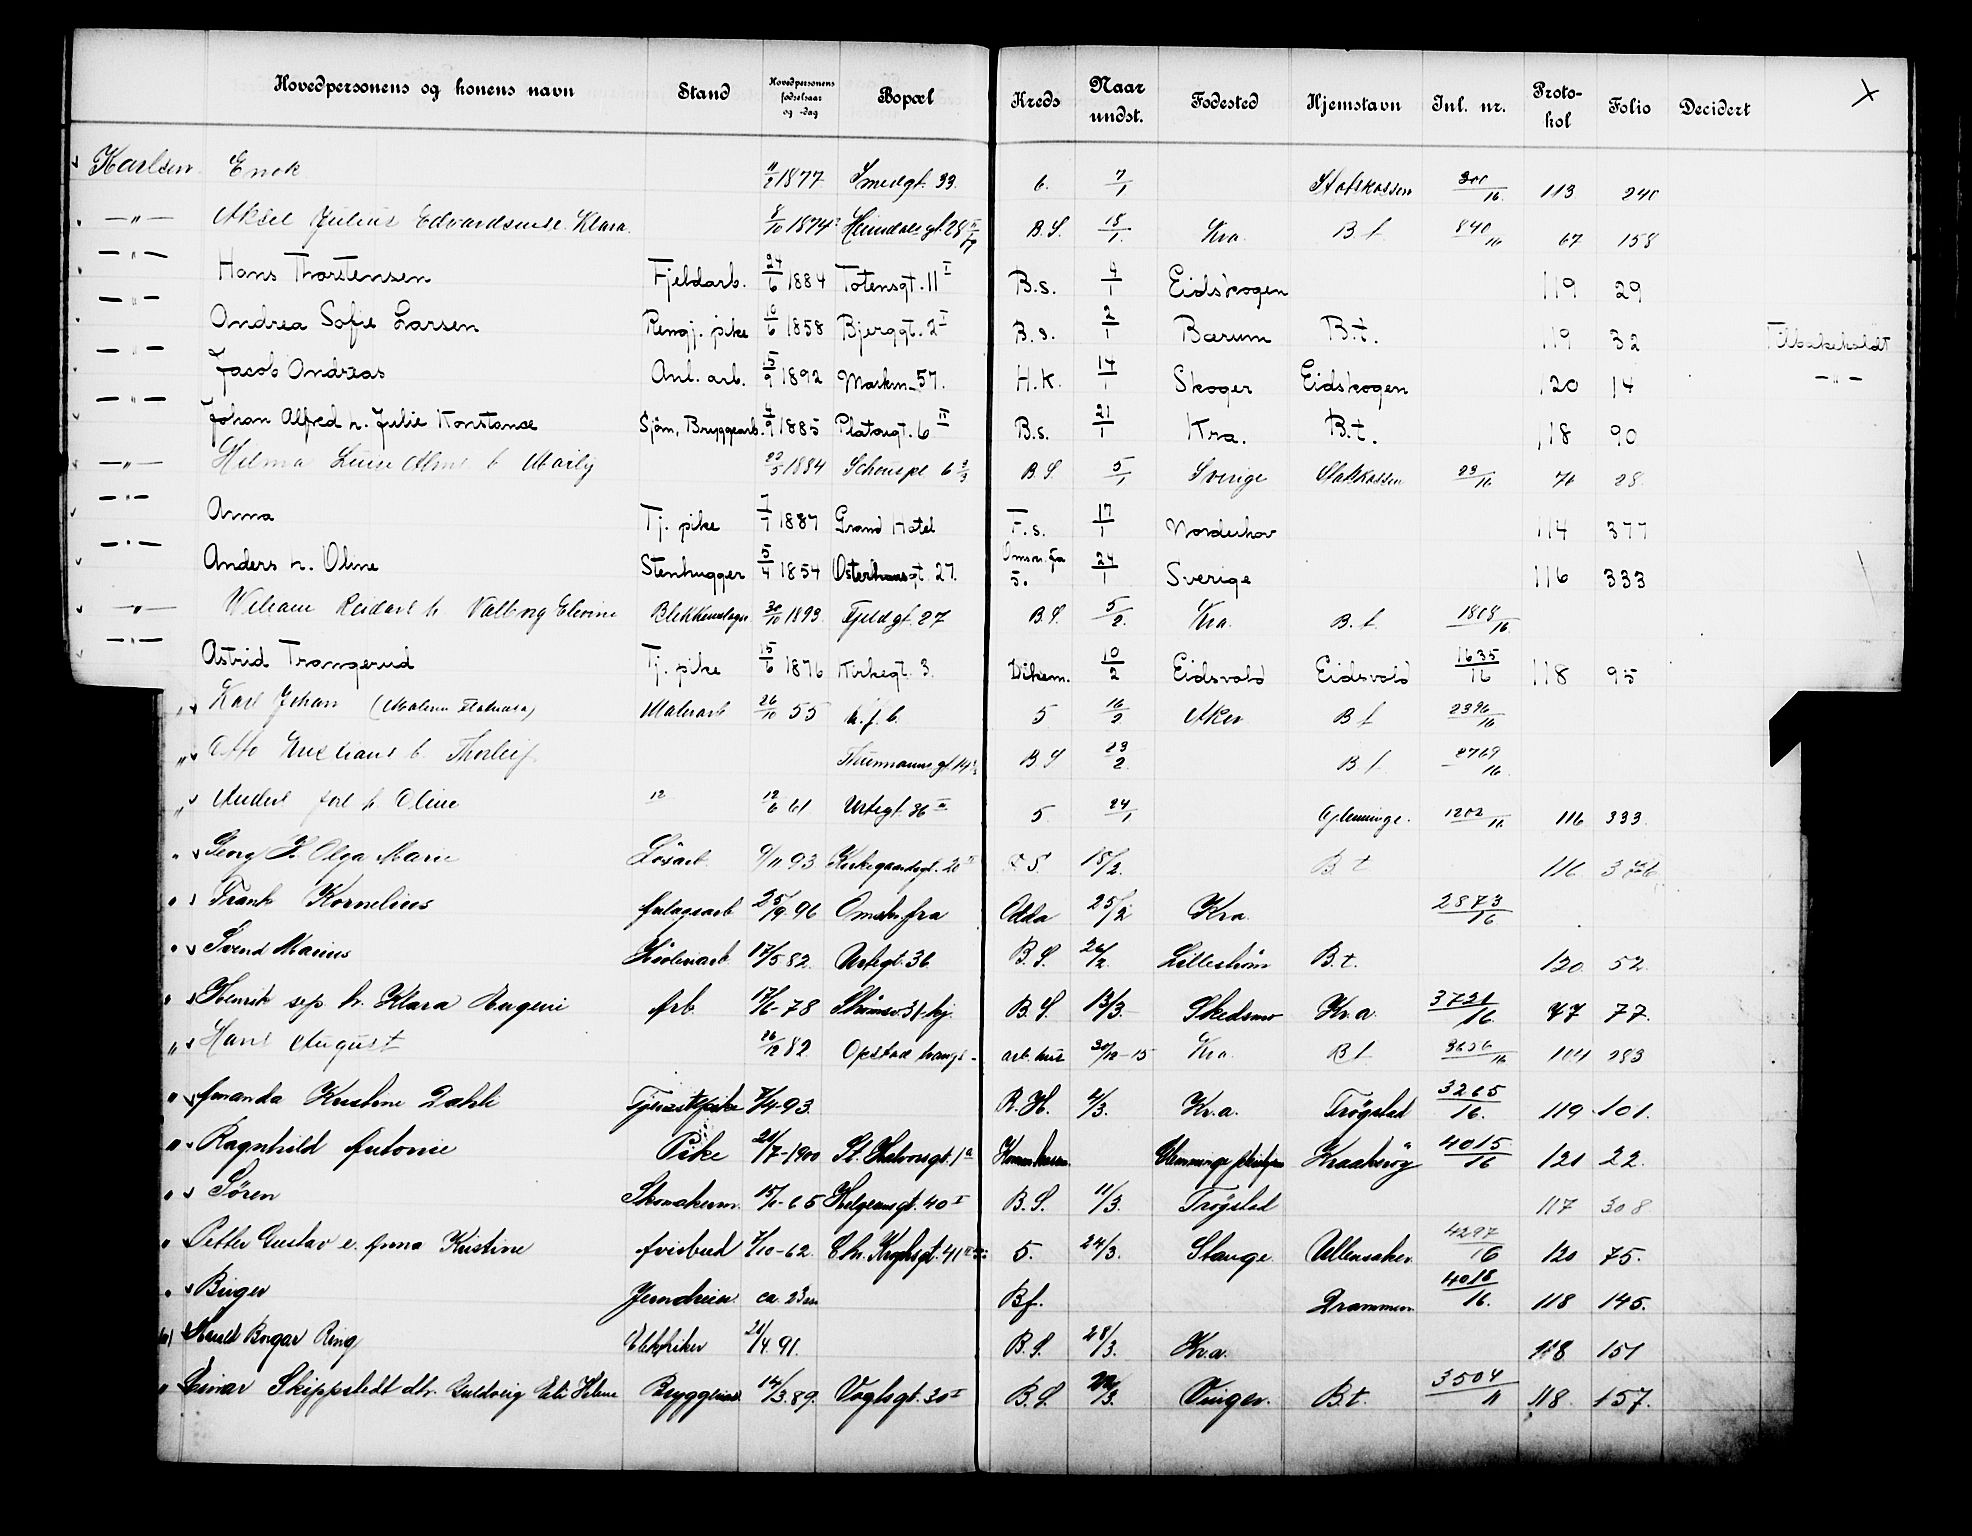 Hovedpersonens og konens navn | Stand | Hovedpersonens fødselsaar og -dag | Bopæl | Kreds | Naar undst. | Fødested | Hjemstavn | Inl. nr. | Proto-kol | Folio | Decidert | X
Karlsen Enok | 11/2 1877 | Smedgt. 33 | 6. | 7/1 | Statskassen | 300/16 | 113 | 240
—"— Aksel Julius Edvardsen Klara | 8/10 1874 | Heimdalsgt. 28 | B.S. | 18/1 | Kra. | B.t. | 840/16 | 67 | 158
—"— Hans Thorstensen | Fjeldarb. | 24/6 1884 | Totensgt. 11 I | B.s. | 4/1 | Eidskogen | 119 | 29
—"— Andrea Sofie Larsen | Rengj. pike | 10/6 1858 | Bjerggt. 2 I | B.s. | 2/1 | Bærum | B.t. | 119 | 32 | Tilbakeholdt
—"— Jacob Andreas | Anl. arb. | 5/9 1892 | Markv. 57. | H.K. | 14/1 | Skoger | Eidskogen | 120 | 14 | —"—
—"— Johan Alfred h. Julie Konstanse | Sjøm, Bryggearb. | 4/9 1885 | Platougt. 6 IV | B.s. | 21/1 | Kra. | B.t. | 118 | 90
—"— Hilma Luise b. Marly | 1884 | Schouspl 6 | B.S. | 5/1 | Sverige | Statskassen | 23/16 | 70 | 28
—"— Anna | Tj. pike | 7/7 1887 | Grand Hotel | F.s. | 17/1 | Norderhov | 114 | 377
—"— Anders h. Oline | Stenhugger | 5/4 1854 | Osterhausgt. 27. | Omsk. fa 5. | 24/1 | Sverige | 116 | 333
—"— Reidar h. Valborg Elvine | Blikkenslager | 30/10 1893 | Fjeldgt. 27 | B.S. | 5/2. | Kra. | B.t. | 1808/16
—"— Astrid Trangerud | Tj. pike | 15/6 1876 | Kirkegt. 3. | Dikem. | 10/2 | Eidsvold | Eidsvold | 1635/16 | 118 | 95
" Karl Johan | Malerarb | 26/10 55 | h.f.b. | 5 | 16/2 | Aker | B.t. | 2396/16
" Otto b. Thorleif | Thurmannsgt. 14 | B S | 23/2. | B.t. | 2769/16
" Anders h. Oline | 12 | 12/6 61 | Urtegt. 36 II | 5. | 24/1 | Glemminge. | 1202/16 | 116 | 333.
" Georg H. Olga Marie | Løsarb. | 9/11 93 | Kirkegaardsgt. 20 II | 15/2. | B t | 116 | 376
" Frank Kornelius | Anlagsarb | 25/9. 96 | Omsk. fra | Odda | 25/2 | Kra. | 2873/16
" Svend Marius | 17/5 82. | Urtegt. 36 | B.S. | 26/2. | Lillestrøm | B.t. | 120 | 52.
" Henrik sep. h. Klara Eugenie | Arb. | 17/6-78 | B.S. | 13/3.- | Skedsmo | Kr.a. | 3721/16. | 77.
" Hans August | 26/12 82 | Opstad tvangs- | arb. hus | 30/10-15 | Kra. | B t | 3636/16 | 104 | 283
" Amanda Kristine Dahli | Tjenestepike | 7/4-93. | R.H. | 2/3. | Kr.a. | Trøgstad | 3265/16. | 119 | 101.
" Ragnhild Antonie | Pike | 21/7-1900 | St. Halvorsgt. 1a | Kraakerøy | 4015/16 | 121 | 22.
" Søren | Skomakerm. | 15/ - 65 | Helgesensgt. 40 I | B.S. | 11/3. | Trøgstad | 117 | 308
" Petter Gustav e. Anna Kristine | Avisbud | 7/10-62. | Chr. Kroghsgt. 41 | 5. | 24/3. | Stange. | Ullensaker | 4297/16 | 120 | 75.
" Birger | Jerndreier | ca. 23 | Bf. | Drammen | 4018/16. | 118 | 145.
" Borgar Ring | Elektriker | 21/4. 91. | B.S. | 28/3. | Kr.a. | 118 | 151
" Einar Skippstedt | Bryggeriarb. | 14/3. 89. | Vogtsgt. 30 I | B.S. | Vinger. | B.t. | 3504/11 | 118. | 157.